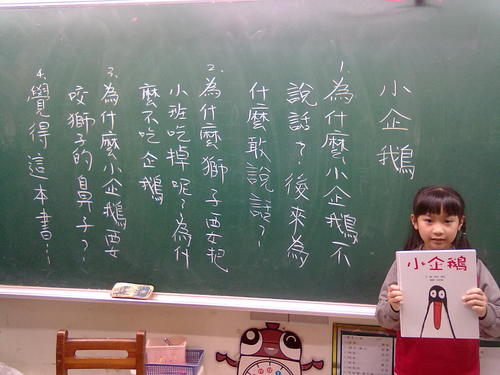 小企鵝
1.為什麼小企鵝不
說話？後來為
什麼敢說話？
2.為什麼獅子要把
小班吃掉呢？為什
麼不吃企鵝
3.為什麼小企鵝要
咬獅子的鼻子？
4.覺得這本書…
小企鵝